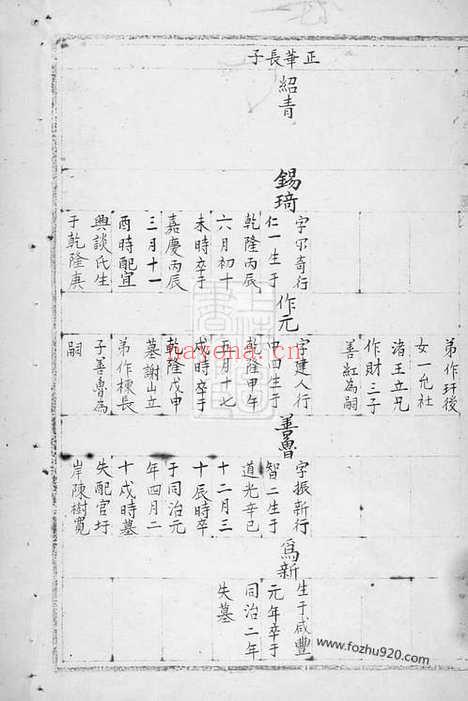 正華長子
紹青
錫琦
字不奇行
仁一生于
乾隆丙辰
六月初十
未時卒于
嘉慶丙辰
三月十一
酉時配宜
興談氏生
于乾隆庚
弟作玕後
女一允社
渚王立兄
作財三子
善紅為嗣
作元
字建人行
中四生于
乾隆甲午
五月十七
戌時卒于
乾隆戊申
墓謝山立
弟作棟長
子善魯為
嗣
善魯
字振新行
智二生于
道光辛巳
十二月三
十辰時卒
于同治元
年四月二
十戌時墓
失配官圩
岸陳樹寬
為新
生于咸豐
元年卒于
同治二年
失墓
nayona.cn
www.fozhu920.com